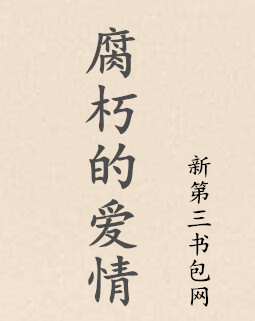 腐朽的爱情
新第三书包网